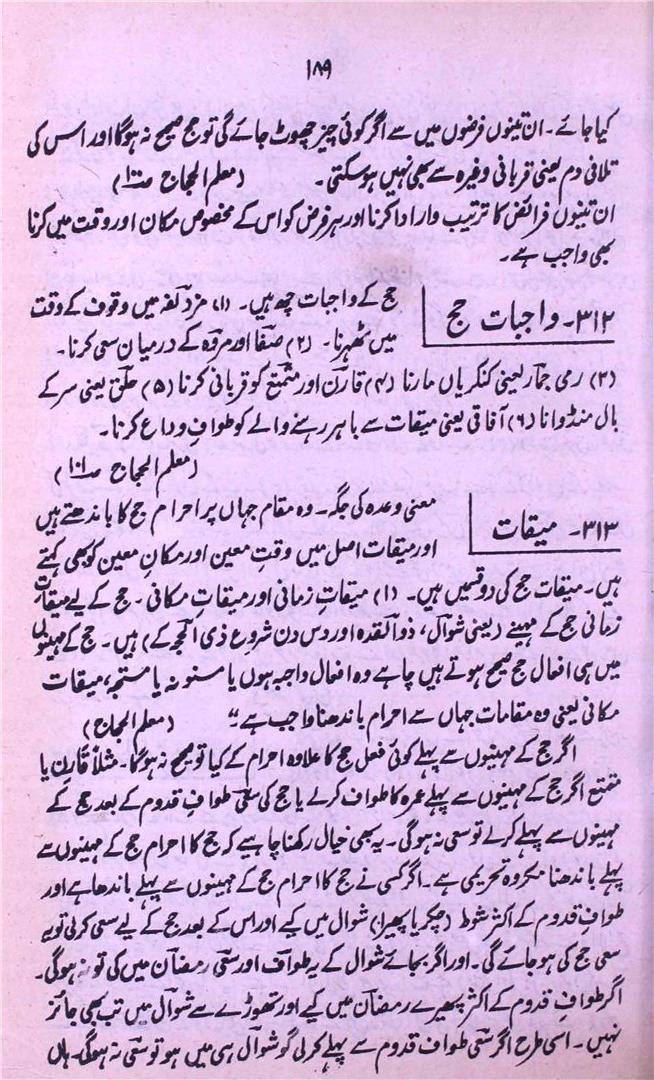 ۱۸۹
کیا جائے۔ ان تینوں فرضوں میں سے اگر کوئی چیز چھوٹ جائے گی تو حج صحیح نہ ہوگا اور اس کی
تلافی دم یعنی قربانی وغیرہ سے بھی نہیں ہوسکتی۔ (معلم الحجاج صنا)
ان تینوں فرائض کا ترتیب وار ادا کرنا اور ہر فرض کو اس کے مخصوص مکان اور وقت میں کرنا
بھی واجب ہے۔
۳۱۲۔ واجبات حج
حج کے واجبات چھ ہیں۔ (۱) مزدلفہ میں وقوف کے وقت
میں ٹھہرنا۔ (۲) صفا اور مروہ کے درمیان سعی کرنا۔
(۳) رمی جمار یعنی کنکریاں مارنا (۴) قارن اور متمتع کو قربانی کرنا (۵) حلق یعنی سر کے
بال منڈوانا (۶) آفاقی یعنی میقات سے باہر رہنے والے کو طوافِ وداع کرنا۔
(معلم الحجاج صا۱۰)
۳۱۳۔ میقات
معنی وعدہ کی جگہ۔ وہ مقام جہاں پر احرام حج کا باندھتے ہیں
اور میقات اصل میں وقتِ معین اور مکانِ معین کو بھی کہتے
ہیں۔ میقات حج کی دو قسمیں ہیں۔ (۱) میقاتِ زمانی اور میقاتِ مکانی۔ حج کے لیے میقات
زمانی حج کے مہینے (یعنی شوال، ذوالقعدہ اور دس دن شروع ذی الحجہ کے) ہیں۔ حج کے مہینوں
میں ہی افعال حج صحیح ہوتے ہیں چاہے وہ افعال واجبہ ہوں یا مسنونہ یا مستحبہ، میقات
مکانی یعنی وہ مقامات جہاں سے احرام باندھنا واجب ہے؛؛ (معلم الحجاج)
اگر حج کے مہینوں سے پہلے کوئی فعل حج کا علاوہ احرام کے کیا تو صحیح نہ ہوگا۔ مثلاً قارن یا
متمتع اگر حج کے مہینوں سے پہلے عمرہ کا طواف کرلے یا حج کی سعی طوافِ قدوم کے بعد حج کے
مہینوں سے پہلے کرلے تو سعی نہ ہوگی۔ یہ بھی خیال رکھنا چاہیے کہ حج کا احرام حج کے مہینوں سے
پہلے باندھنا مکروہ تحریمی ہے۔ اگر کسی نے حج کا احرام حج کے مہینوں سے پہلے باندھا ہے اور
طوافِ قدوم کے اکثر شوط (چکر یا پھیرا) شوال میں کیے اور اس کے بعد حج کے لیے سعی کرلی تو یہ
سعی حج کی ہوجائے گی۔ اور اگر بجائے شوال کے یہ طواف اور سعی رمضان میں کی تو نہ ہوگی۔
اگر طوافِ قدوم کے اکثر پھیرے رمضان میں کیے اور تھوڑے سے شوال میں تب بھی جائز
نہیں۔ اسی طرح اگر سعی طواف قدوم سے پہلے کرلی گو شوال ہی میں ہو تو سعی نہ ہوگی۔ ہاں